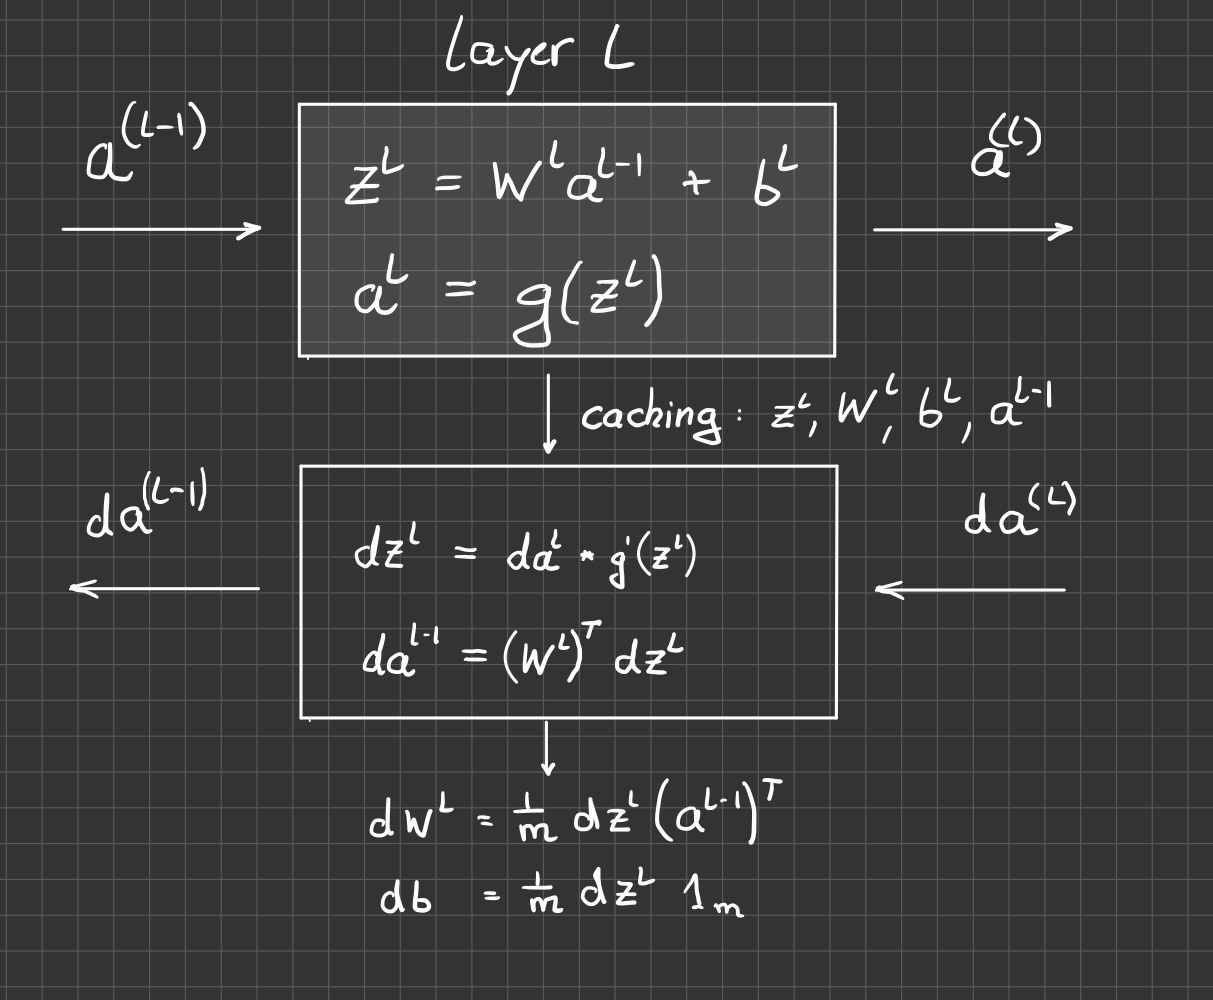 Layer L
a^(L-1)
z^L = W^L a^L-1 + b^L
a^L = g(z^L)
a^(L)
caching: z^L, W^L, b^L, a^L-1
da^(L-1)
dz^L = da^L * g'(z^L)
da^L-1 = (W^L)^T dz^L
da^(L)
dw^L = 1/m dz^L (a^L-1)^T
db = 1/m dz^L 1_m